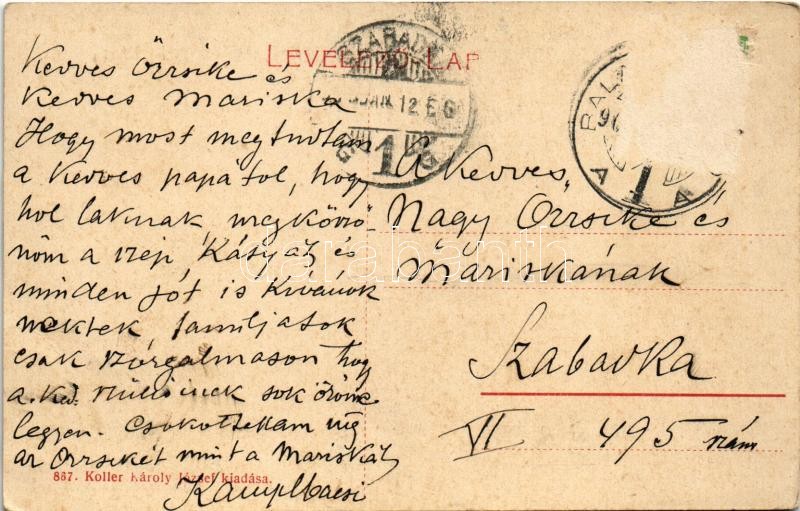 LEVELEZŐ LAP
Kedves Örrsike és
Kedves Mariska
Hogy most megtudtam
a kedves papától, hogy
hol laknak, megkörö
nöm a szép Kátyát és
minden jót is kívánok
nektek,
csak szorgalmason hogy
a ked. sok öröme
legyen. Csokollak
az Örrsikét mint a Mariskát
A Kedves
Nagy Örrsike és
Mariskának
Szabadka
VI 495 szám
SZABADKA
JAN 12 E 6
1
PAL
1
darabanth
867. Koller Károly József kiadása.